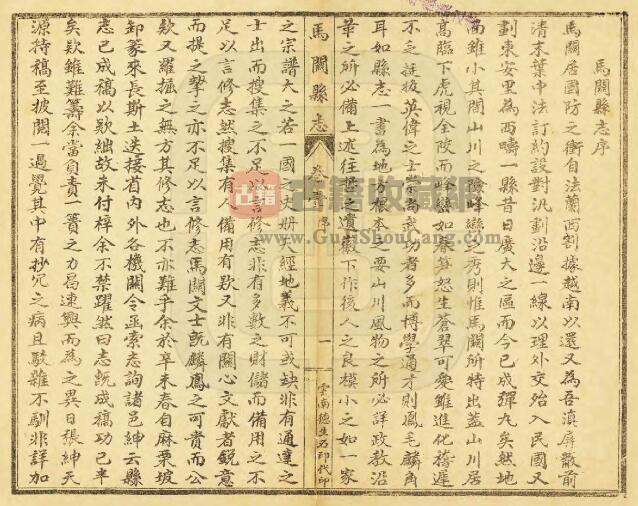 馬關縣志序
馬關居國防之衝自法蘭西割據越南以還又為吾滇屏蔽前
清末葉中法訂約設對汛劃沿邊一線以理外交殆入民國又
劃東安里為西疇一縣昔日廣大之區而今已成彈丸矣然地
面雖小其間山川之險峰巒之秀則惟馬關所特出蓋山川居
高臨下虎視全陂而峰巒如春筍怒生蒼翠可愛雖進化稽遲
不乏挺拔英偉之士崇尚武功者多而博學通才則鳳毛麟角
耳如縣志一書為地方根本之要山川風物之所必詳政教沿
革之所必備上述往哲之遺徽下作後人之良模小之如一家
馬關縣志
卷首
序
一
雲南德生石印代印
之宗譜大之若一國之史冊天經地義不可或缺非有通達之
士出而搜集之不足以言修志非有多數之財儲而備用之不
足以言修志然搜集有人備用有欵又非有關心文獻者銳意
而提之挈之亦不足以言修志馬關文士旣麟鳳之可貴而公
欵又羅掘之無方其修志也不亦難乎余於辛未春自麻栗坡
卸篆來長斯土迭接省內外各機關令函索志詢諸邑紳云縣
志已成稿以欵絀故未付梓余不禁躍然曰志旣成稿功已半
矣欵雖難籌余當負責一簣之力曷速興而為之異日張紳天
源持稿至披閱一過覺其中有抄冗之病且駁雜不馴非詳加
古籍
古籍收藏網
www.GuJiShouCang.com